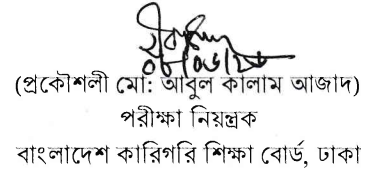 (প্রকৌশলী মো: আবুল কালাম আজাদ)
পরীক্ষা নিয়ন্ত্রক
বাংলাদেশ কারিগরি শিক্ষা বোর্ড, ঢাকা